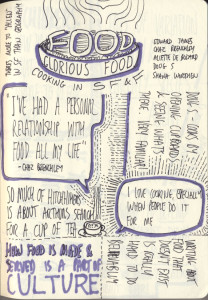 THERE'S MORE TO "ACCENT"
IN SF THAN GEOGRAPHY
FOOD
GLORIOUS FOOD
COOKING IN SF&F
EDWARD JAMES
CHAZ BRENCHLEY
ALIETTE DE BODARD
DOUG S
"I'VE HAD A PERSONAL
RELATIONSHIP WITH
FOOD ALL MY LIFE"
- CHAZ BRENCHLEY
DOUG S - COOKS BY
OPENING CUPBOARD
& SEEING WHAT'S
THERE. VERY FAMILIAR!
SO MUCH OF HITCHHIKERS
IS ABOUT ARTHUR'S SEARCH
FOR A CUP OF TEA
I LOVE COOKING, ESPECIALLY
WHEN PEOPLE DO IT
FOR ME
WRITING ABOUT
FOOD THAT
DOESN'T EXIST
IS REALLY
HARD TO DO
HOW FOOD IS MADE &
SERVED IS A PART OF
CULTURE